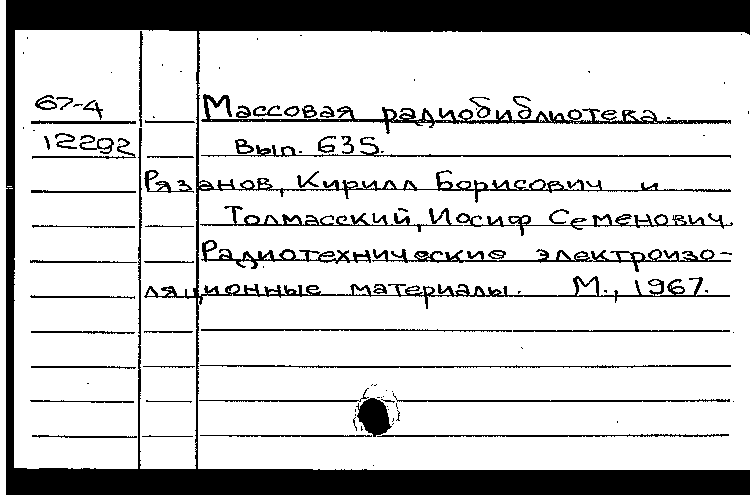 67-4 Массовая радиобиблиотека.
12292 Вып. 635.
Рязанов, Кирилл Борисович и
Толмасский, Иосиф Семенович.
Радиотехнические электроизо-
ляционные материалы. М., 1967.